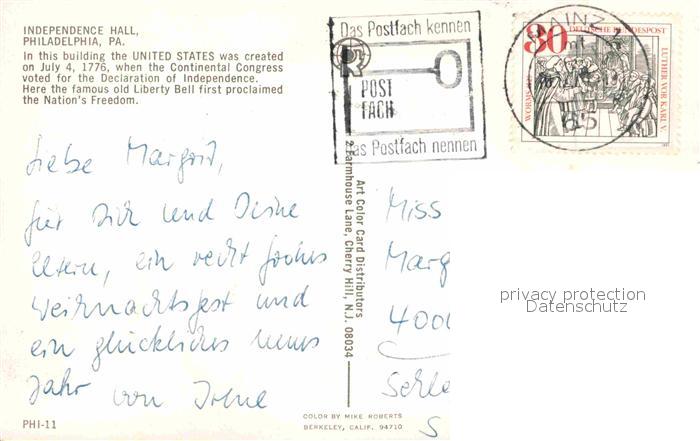 INDEPENDENCE HALL,
PHILADELPHIA, PA.
In this building the UNITED STATES was created
on July 4, 1776, when the Continental Congress
voted for the Declaration of Independence.
Here the famous old Liberty Bell first proclaimed
the Nation's Freedom.
Das Postfach kennen
POST
FACH
das Postfach nennen
MAINZ
65
30
DEUTSCHE BUNDESPOST
LUTHER VOR KARL V.
WORMS 1521
Liebe Margrid,
für Dich und Deine
Eltern, ein recht frohes
Weihnachtsfest und
ein glückliches neues
Jahr von Irene
Art Color Card Distributors
2 Farmhouse Lane, Cherry Hill, N.J. 08034
Miss
Marg
4000
Schle
S
privacy protection
Datenschutz
PHI-11
COLOR BY MIKE ROBERTS
BERKELEY, CALIF. 94710